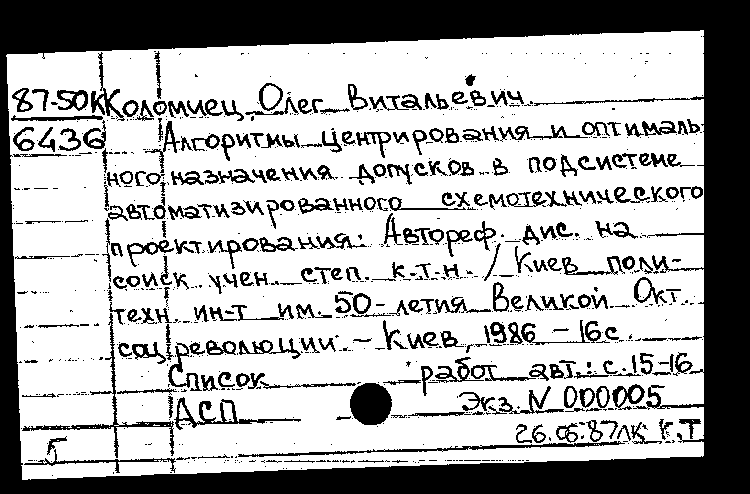 87-50К Коломиец, Олег Витальевич
6436 Алгоритмы центрирования и оптималь
ного назначения допусков в подсистеме
автоматизированного схемотехнического
проектирования: Автореф. дис. на
соиск учен. степ. к.т.н. / Киев поли-
техн. ин-т им. 50-летия Великой Окт.
соц революции. - Киев, 1986 - 16с.
Список работ авт.: с. 15-16
АСП Экз. N 000005
5 26.06.87лк К.Т